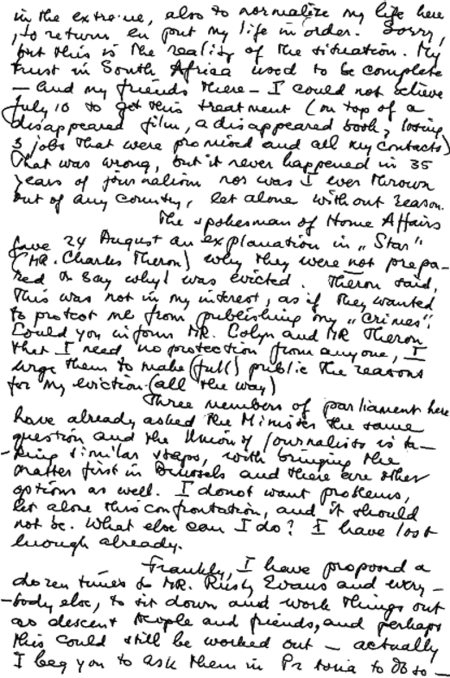 in the extreme, also to normalize my life here
, to return en put my life in order. Sorry,
but this is the reality of the situation. My
trust in South Africa used to be complete
– and my friends there – I could not believe
July 10 to get this treatment (on top of a
disappeared film, a disappeared book, losing
3 jobs that were promised and all my contacts)
What was wrong, but it never happened in 35
years of journalism nor was I ever thrown
out of any country, let alone without reason.
The spokesman of Home Affairs
gave 24 August an explanation in „Star"
(MR. Charles Theron) why they were not prepa-
red to say why I was evicted. Theron said,
this was not in my interest, as if they wanted
to protect me from publishing my „crimes".
Could you inform MR. Colyn and MR Theron
that I need no protection from anyone, I
urge them to make (full) public the reasons
for my eviction (all the way)
Three members of parliament here
have already asked the Minister the same
question and the Union of Journalists is ta-
-king similar steps, with bringing the
matter first in Brussels and there are other
options as well. I donot want problems,
let alone this confrontation, and it should
not be. What else can I do? I have lost
enough already.
Frankly, I have proposed a
dozen times to MR. Rusty Evans and every-
-body else, to sit down and work things out
as descent people and friends, and perhaps
this could still be worked out – actually
I beg you to ask them in Pretoria to do so –